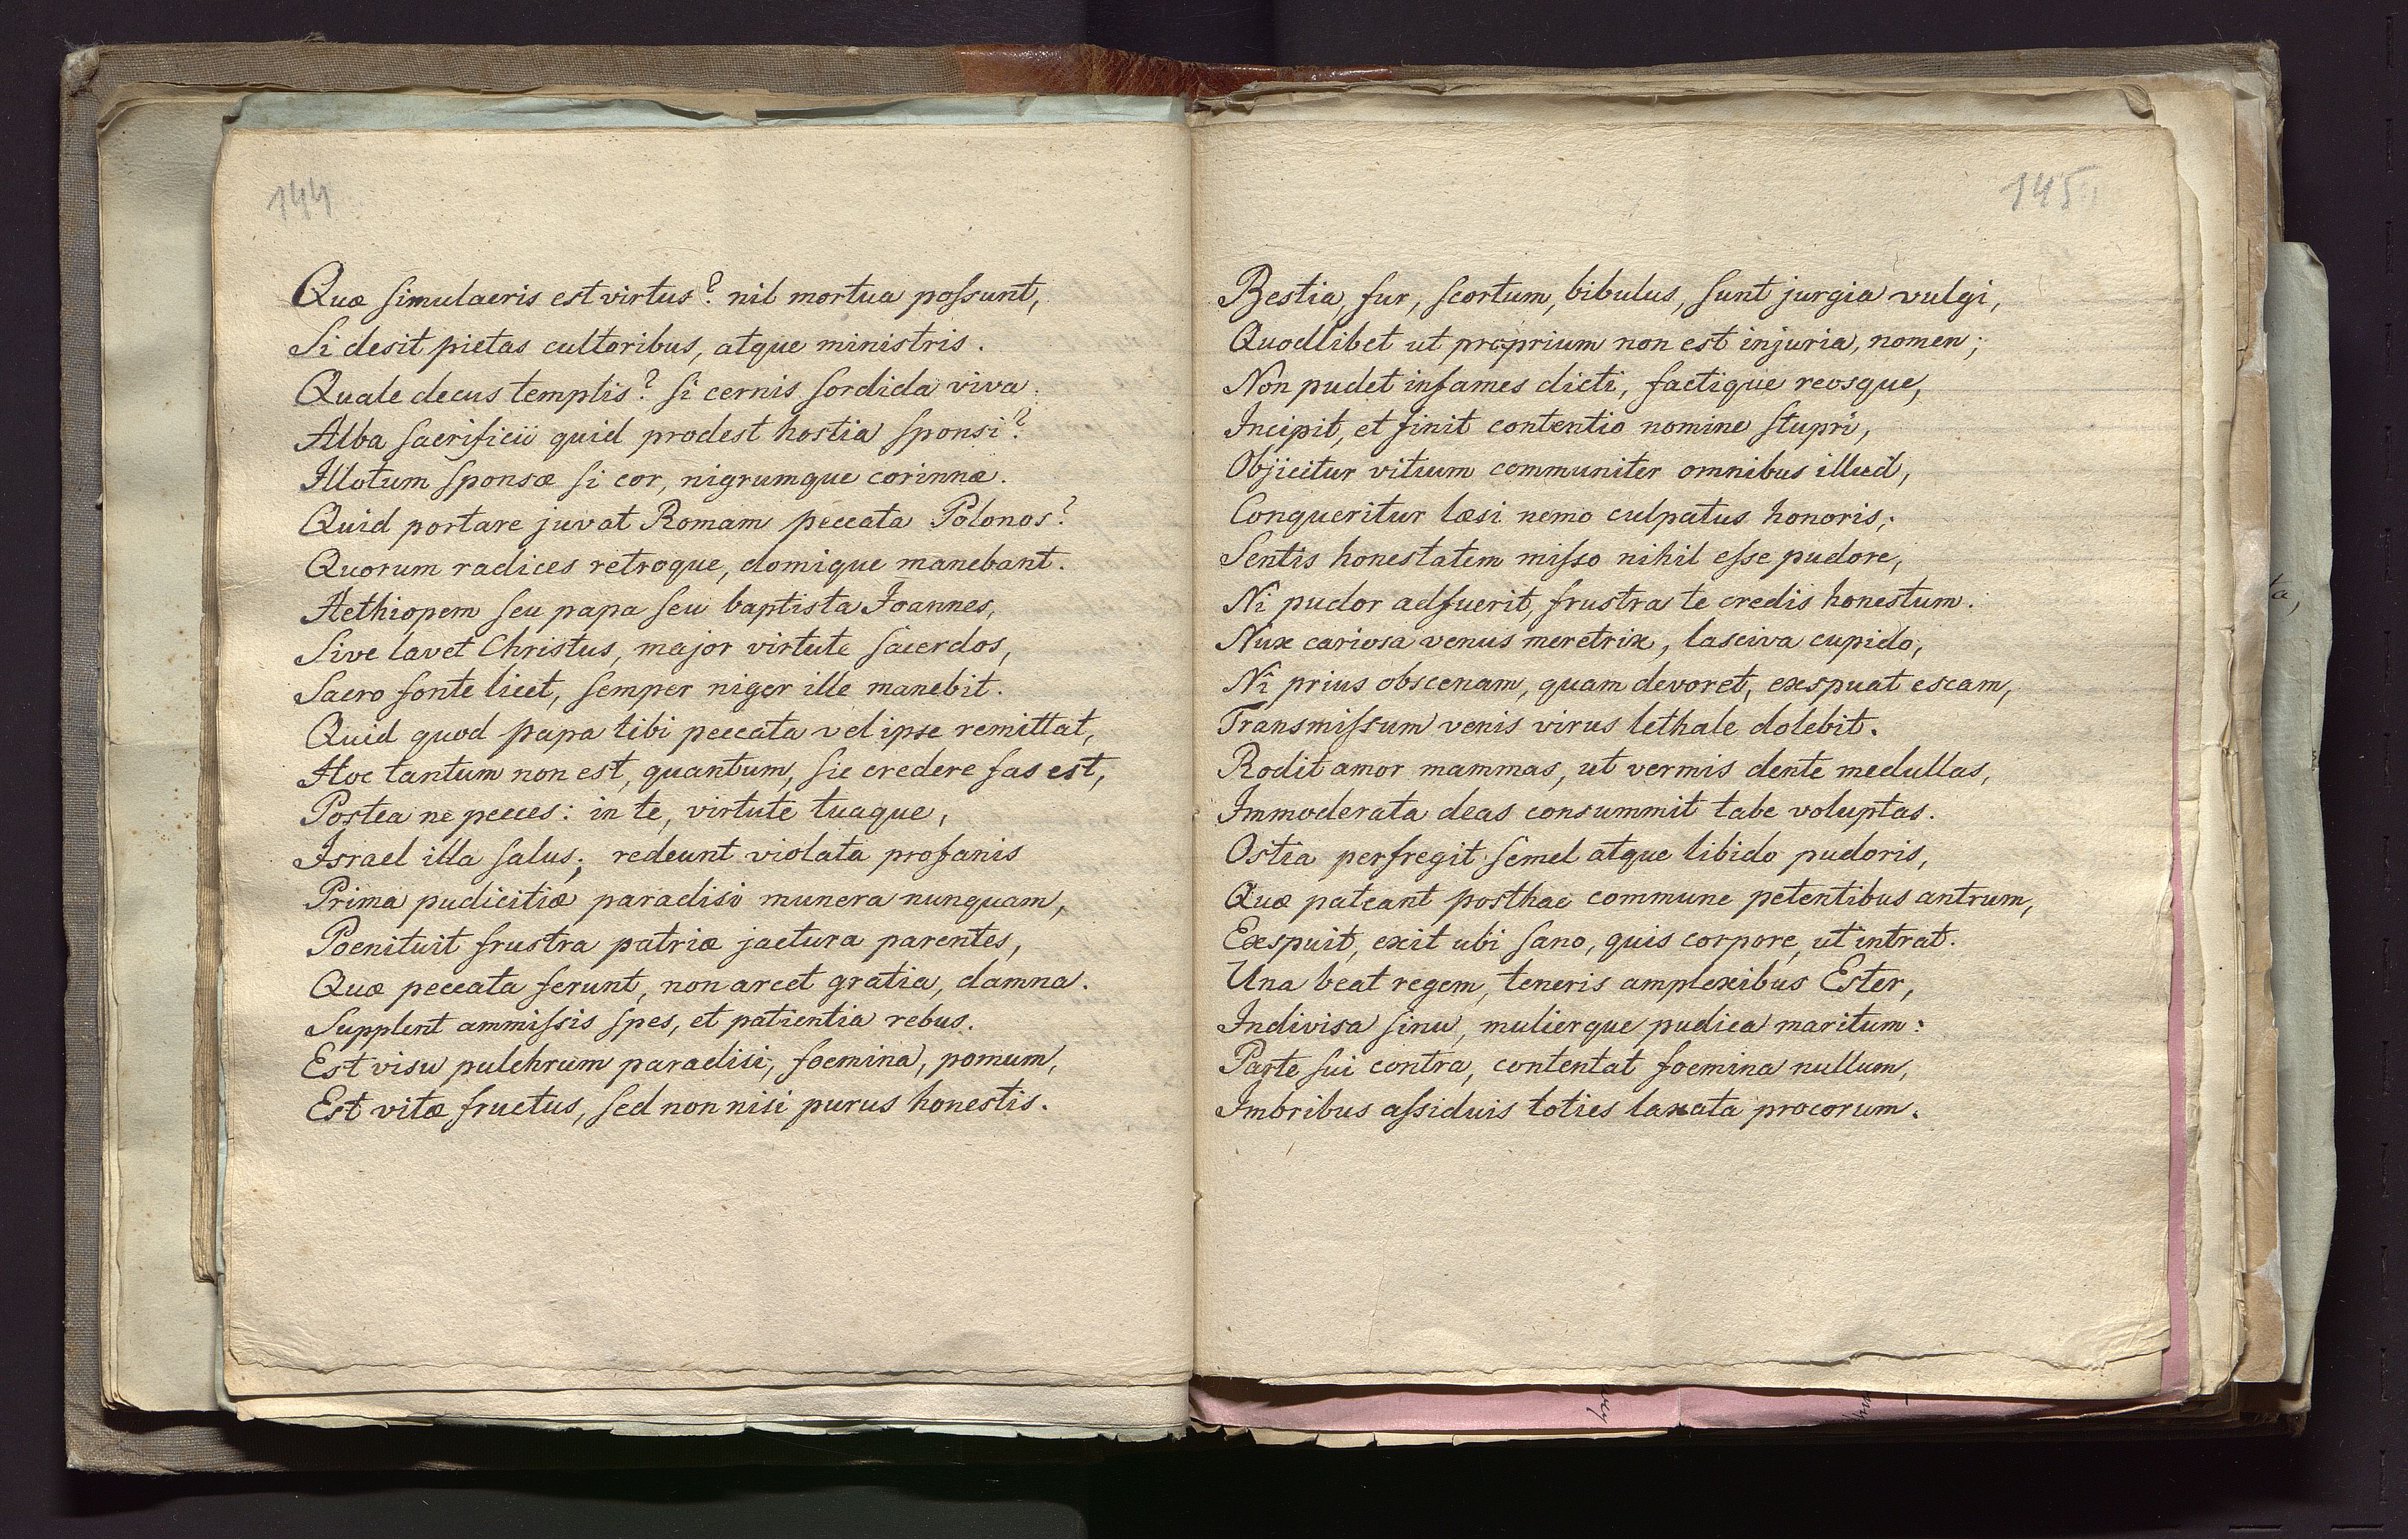 144
Quæ simulacris est virtus? nil mortua possunt,
Si desit pietas cultoribus, atque ministris.
Quale decus templis? si cernis sordida viva.
Alba sacrificii quid prodest hostia sponsi?
Illotum sponsæ si cor, nigrumque corinnæ.
Quid portare juvat Romam peccata Polonos?
Quorum radices retroque, domique manebant.
Aethiopem seu papa seu baptista Joannes,
Sive lavet Christus, major virtute sacerdos,
Sacro fonte licet, semper niger ille manebit.
Quid quod papa tibi peccata vel ipse remittat,
Hoc tantum non est, quantum, sic credere fas est,
Postea ne pecces: in te, virtute tuaque,
Israel illa salus; redeunt violata profanis
Prima pudicitiæ paradisi munera nunquam,
Poenituit frustra patriæ jactura parentes,
Quæ peccata ferunt, non arcet gratia, damna.
Supplent ammissis spes, et patientia rebus.
Est visu pulchrum paradisi, foemina, pomum,
Est vitæ fructus, sed non nisi purus honestis.
145
Bestia, fur, scortum, bibulus, sunt jurgia vulgi,
Quodlibet ut proprium non est injuria, nomen;
Non pudet infames dicti, factique reosque,
Incipit, et finit contentio nomine stupri,
Objicitur vitium communiter omnibus illud,
Conqueritur læsi nemo culpatus honoris;
Sentis honestatem misso nihil esse pudore,
Ni pudor adfuerit, frustra te credis honestum.
Nux cariosa venus meretrix, lasciva cupido,
Ni prius obscenam, quam devoret, exspuat escam,
Transmissum venis virus lethale dolebit.
Rodit amor mammas, ut vermis dente medullas,
Immoderata deas consummit tabe voluptas.
Ostia perfregit semel atque libido pudoris,
Quæ pateant posthac commune petentibus antrum,
Exspuit, exit ubi sano, quis corpore, ut intrat.
Una beat regem, teneris amplexibus Ester,
Indivisa sinu, mulierque pudica maritum:
Parte sui contra, contentat foemina nullum,
Imbribus assiduis toties laxata procorum.